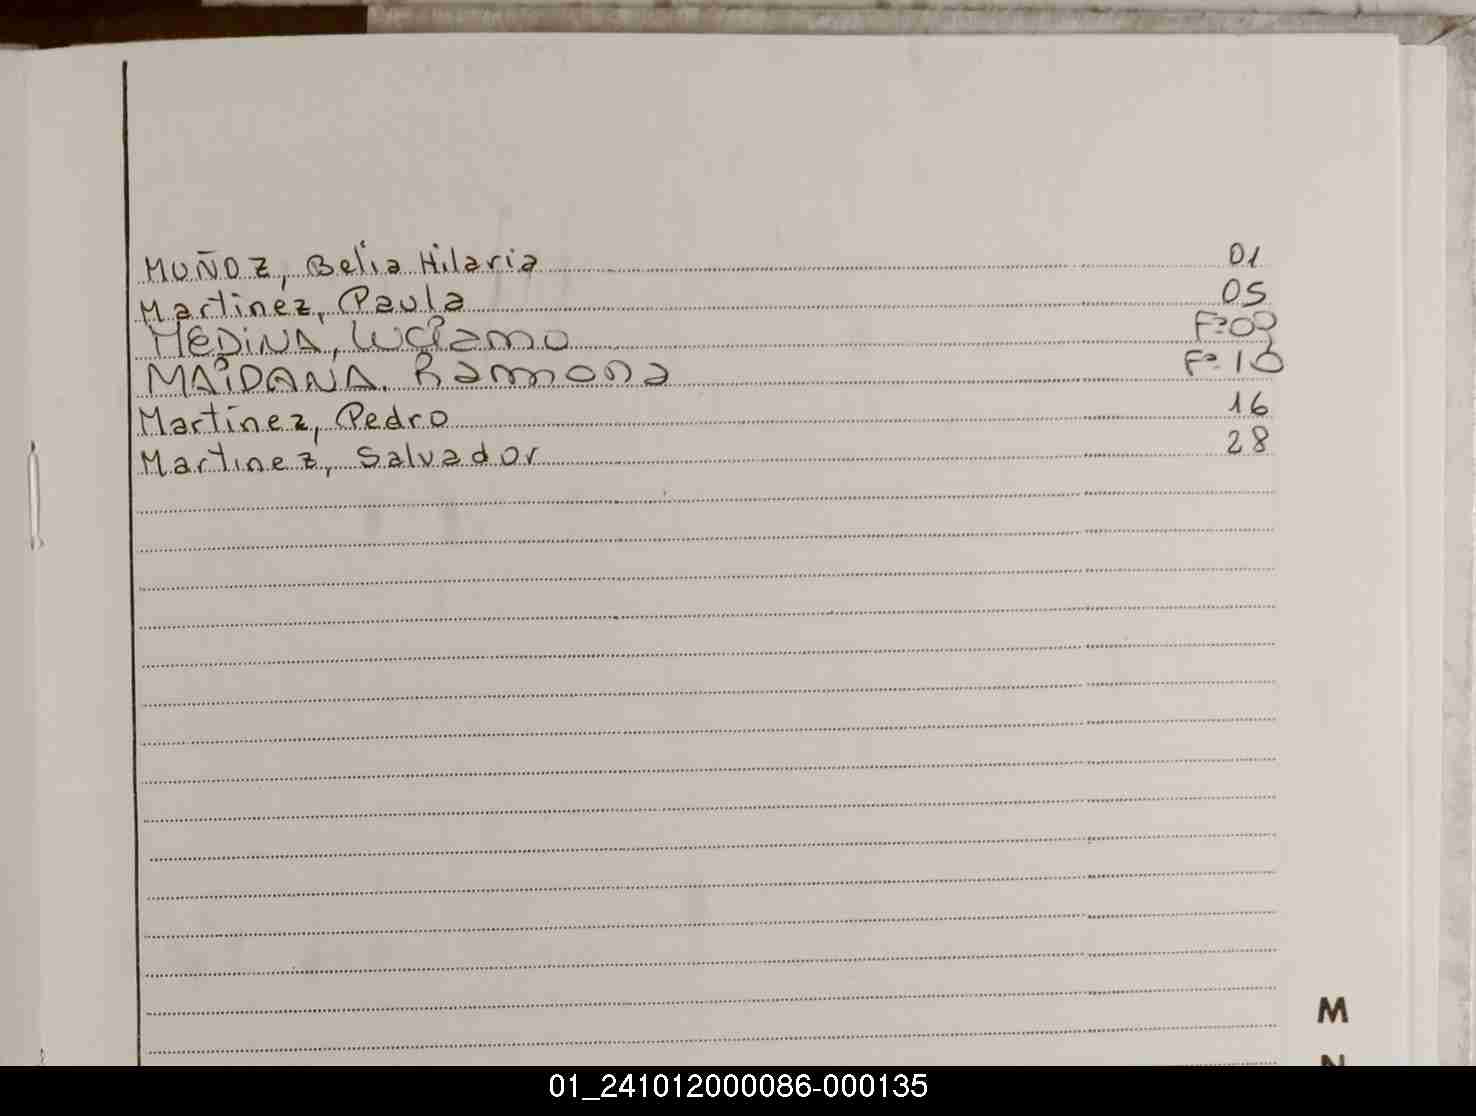 MUÑOZ, Belia Hilaria 01
Martinez, Paula 05
MEDINA, Luciano F:09
MAiDANA. Ramona F: 10
Martinez, Pedro 16
Martinez, Salvador 28
M
N
01_241012000086-000135